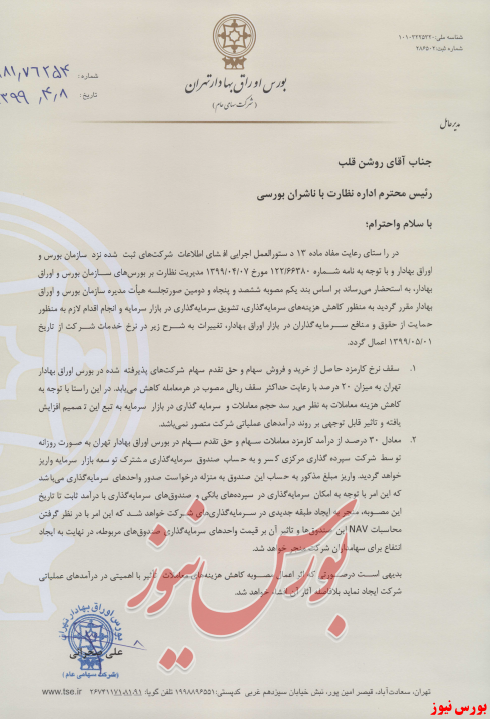 شناسه ملی: ۱۰۱۰۳۲۲۵۳۲۰
شماره ثبت: ۲۸۶۵۰۲
بورس اوراق بهادار تهران
(شرکت سهامی عام)
شماره:
۱۸۱٫۷۶۲۵۴
تاریخ:
۱۳۹۹٫۴٫۸
مدیرعامل
جناب آقای روشن قلب
رئیس محترم اداره نظارت با ناشران بورسی
با سلام واحترام؛
در راستای رعایت مفاد ماده ۱۳ دستورالعمل اجرایی افشای اطلاعات شرکت‌های ثبت شده نزد سازمان بورس و
اوراق بهادار و با توجه به نامه شماره ۱۲۲/۶۶۳۸۰ مورخ ۱۳۹۹/۰۴/۰۷ مدیریت نظارت بر بورس‌های سازمان بورس و اوراق
بهادار، به استحضار می‌رساند بر اساس بند یکم مصوبه ششصد و پنجاه و دومین صورتجلسه هیأت مدیره سازمان بورس و
اوراق بهادار مقرر گردید به منظور کاهش هزینه‌های سرمایه‌گذاری، تشویق سرمایه‌گذاری در بازار سرمایه و انجام اقدام لازم به منظور
حمایت از حقوق و منافع سرمایه‌گذاران در بازار اوراق بهادار، تغییرات به شرح زیر در نرخ خدمات شرکت از تاریخ
۱۳۹۹/۰۵/۰۱ اعمال گردد.
۱. سقف نرخ کارمزد حاصل از خرید و فروش سهام و حق تقدم سهام شرکت‌های پذیرفته شده در بورس اوراق بهادار
تهران به میزان ۲۰ درصد با رعایت حداکثر سقف ریالی مصوب در هرمعامله کاهش می‌یابد. در این راستا با توجه به
کاهش هزینه معاملات به نظر می‌رسد حجم معاملات و سرمایه گذاری در بازار سرمایه به تبع این تصمیم افزایش
یافته و تاثیر قابل توجهی بر روند درآمدهای عملیاتی شرکت متصور نمی‌باشد.
۲. معادل ۳۰ درصد از درآمد کارمزد معاملات سهام و حق تقدم سهام در بورس اوراق بهادار تهران به صورت روزانه
توسط شرکت سپرده گذاری مرکزی کسر و به حساب صندوق سرمایه‌گذاری مشترک توسعه بازار سرمایه واریز
خواهد گردید. واریز مبلغ مذکور به حساب این صندوق به منزله درخواست صدور واحدهای سرمایه‌گذاری می‌باشد
که این امر با توجه به امکان سرمایه‌گذاری در سپرده‌های بانکی و صندوق‌های سرمایه‌گذاری با درآمد ثابت تا تاریخ
این مصوبه، منجر به ایجاد طبقه جدیدی در سرمایه‌گذاری‌های شرکت خواهد شد که این امر با در نظر گرفتن
محاسبات NAV این صندوق‌ها و تاثیر آن بر قیمت واحدهای سرمایه‌گذاری صندوق‌های مربوطه، در نهایت به ایجاد
انتفاع برای سهامداران شرکت منجر خواهد شد.
بدیهی است درصورتی که اثر اعمال مصوبه کاهش هزینه‌های معاملات تاثیر با اهمیتی در درآمدهای عملیاتی
شرکت ایجاد نماید بلافاصله آثار آن افشاء خواهد شد.
بورس نیوز
بورس اوراق بهادار تهران
علی صحرائی
(شرکت سهامی عام)
تهران، سعادت‌آباد، قیصر امین پور، نبش خیابان سیزدهم غربی کدپستی: ۱۹۹۸۸۹۶۵۵۱ تلفن گویا: www.tse.ir
بورس نیوز